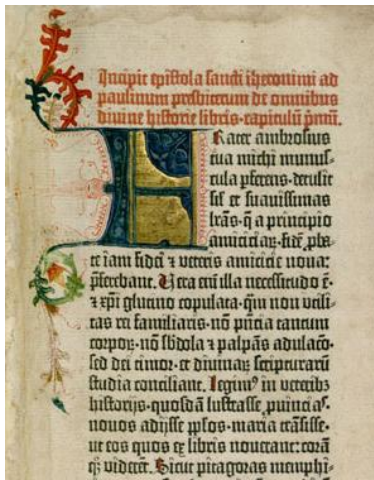 Incipit epistola sancti iheronimi ad
paulinum presbiterum de omnibus
divine historie libris·capitulū pmū.
Frater ambrosius
tua michi munus-
cula ꝑferens·detulit
sił et suavissimas
lrās·q̄ a principio
amiciciaꝝ·fidē ꝓba-
te iam fidei ⁊ veteris amicicie nova:
p̄ferebant. Vera enī illa necessitudo ē·
⁊ xp̄i glutino copulata·qm̄ non utili-
tas rei familiaris·nō p̄ncia tantum
corpoꝝ·nō s̄bdola ⁊ palpās adulacō·
sed dei timor·et divinaꝝ scripturarū
studia conciliant. Legim⁹ in veteribꝫ
historijs·quosdā lustrasse ꝓvincias·
novos adijsse p̄plos·maria trāsisse·
ut eos quos ex libris noverant: corā
qꝫ viderēt. Sicut pitagoras memphi-